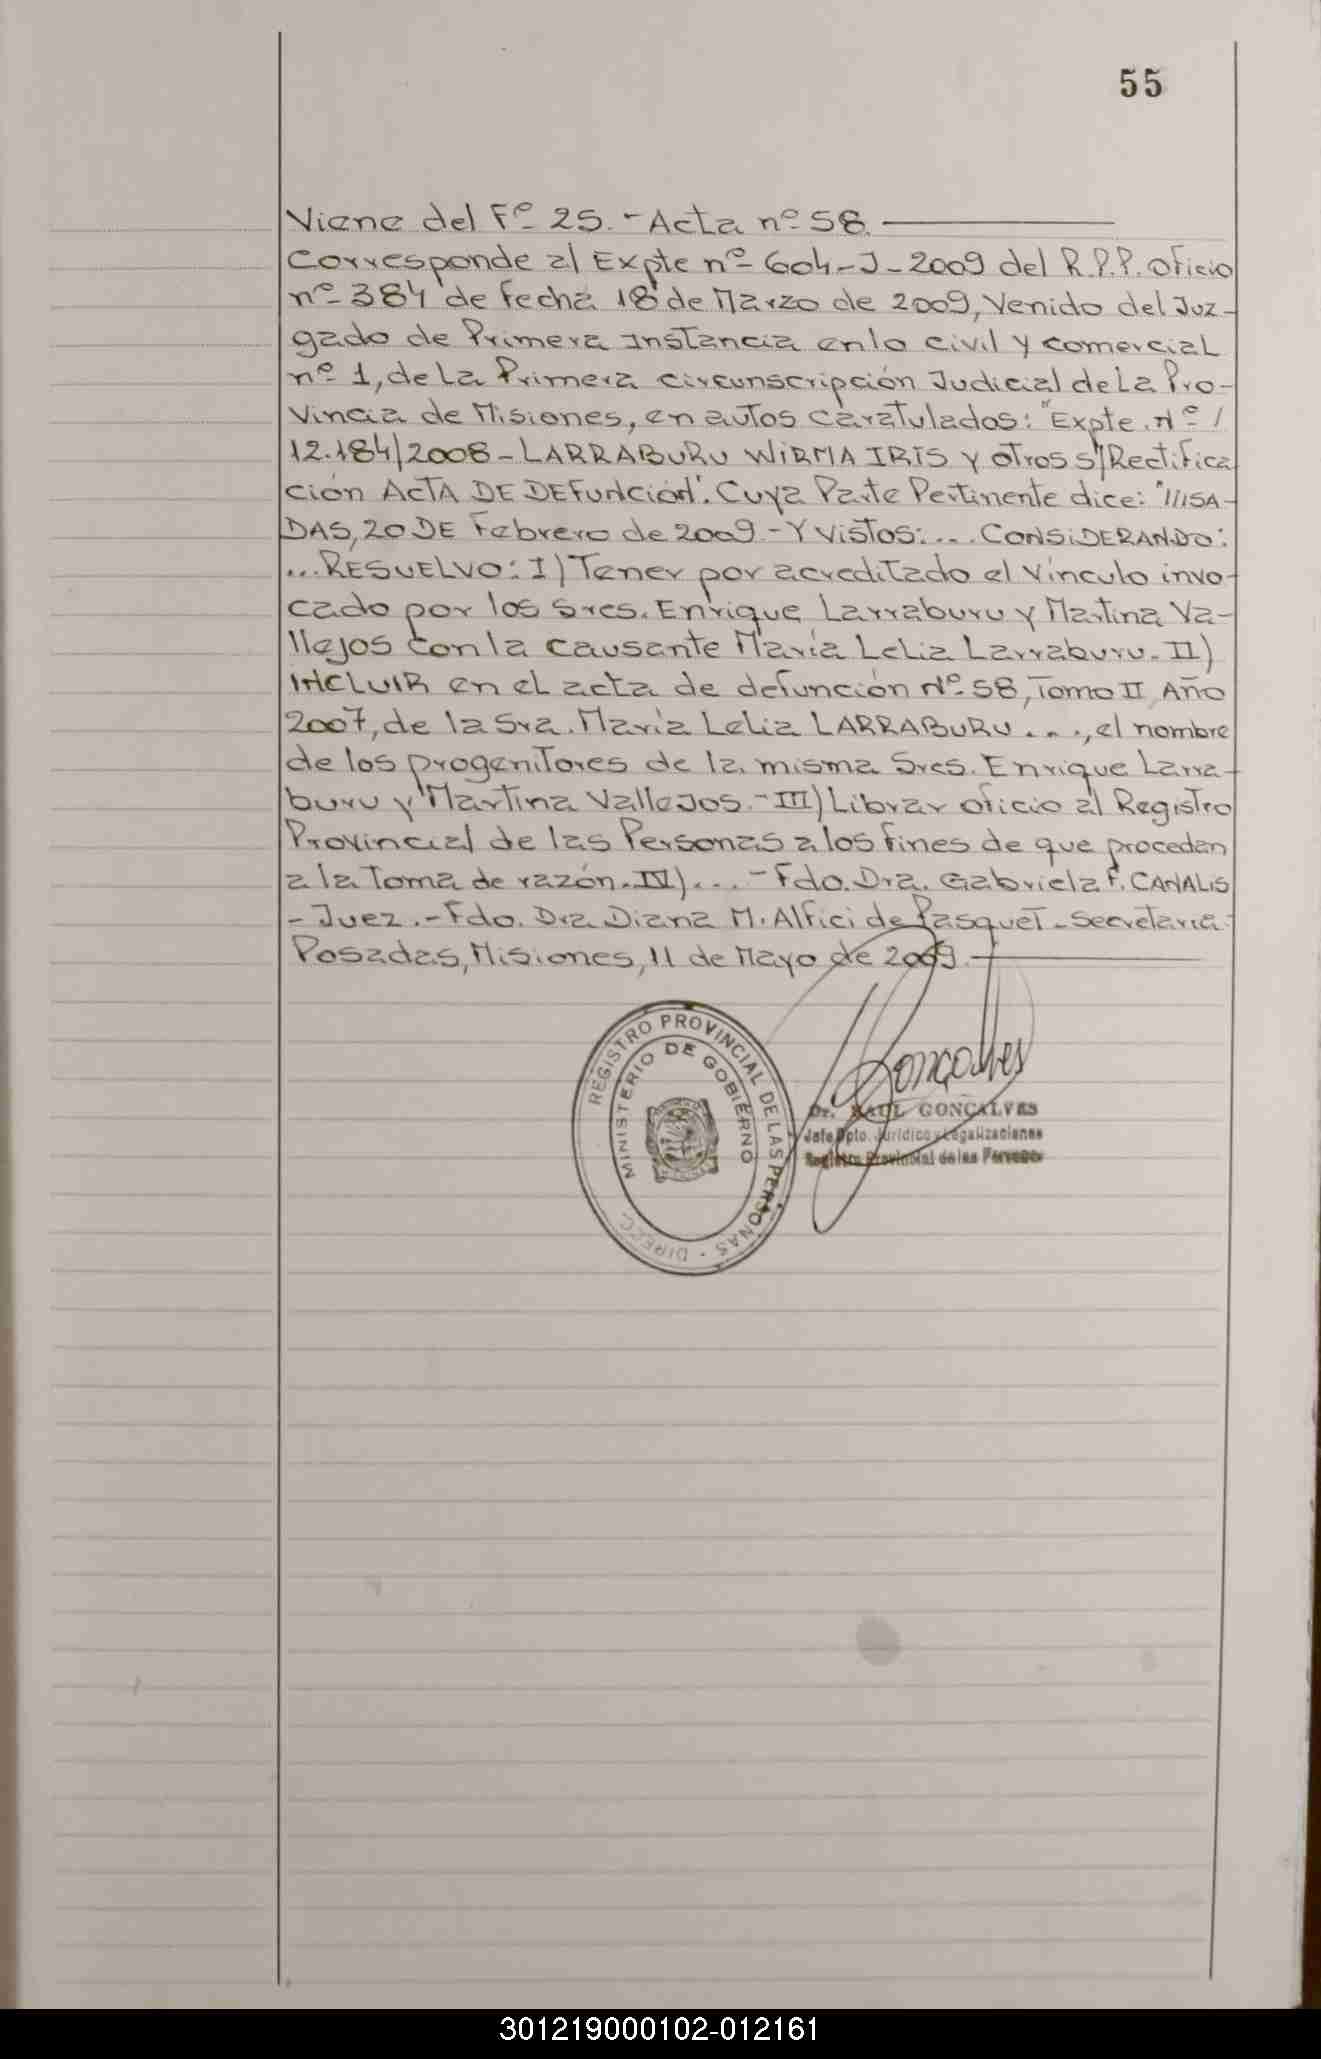 55
Viene del Fº 25.- Acta nº 58.
Corresponde al Expte nº 604-J-2009 del R.P.P. oficio
nº 384 de fecha 18 de Marzo de 2009, Venido del Juz-
gado de Primera Instancia en lo civil y comercial
nº 1, de la Primera circunscripción Judicial de La Pro-
vincia de Misiones, en autos caratulados: "Expte. Nº /
12.184/2008 - LARRABURU WIRMA IRIS y otros s/ Rectifica
ción ACTA DE DEFunción". Cuya Parte Pertinente dice: "///SA-
DAS, 20 DE Febrero de 2009.- Y VISTOS:... CONSIDERANDO:
...RESUELVO: I) Tener por acreditado el vínculo invo-
cado por los Sres. Enrique Larraburu y Martina Va-
llejos con la causante María Lelia Larraburu.- II)
INCLUIR en el acta de defunción Nº 58, Tomo II, Año
2007, de la Sra. María Lelia LARRABURU..., el nombre
de los progenitores de la misma Sres. Enrique Larra-
buru y Martina Vallejos.- III) Librar oficio al Registro
Provincial de las Personas a los fines de que procedan
a la Toma de razón. IV)... - Fdo. Dra. Gabriela F. CANALIS
- Juez.- Fdo. Dra Diana M. Alfici de Pasquet - Secretaria.-
Posadas, Misiones, 11 de Mayo de 2009.
REGISTRO PROVINCIAL DE LAS PERSONAS - DIRECC.
MINISTERIO DE GOBIERNO
Goncalves
Dr. RAUL GONCALVES
Jefe Dpto. Jurídico y Legalizaciones
Registro Provincial de las Personas
301219000102-012161